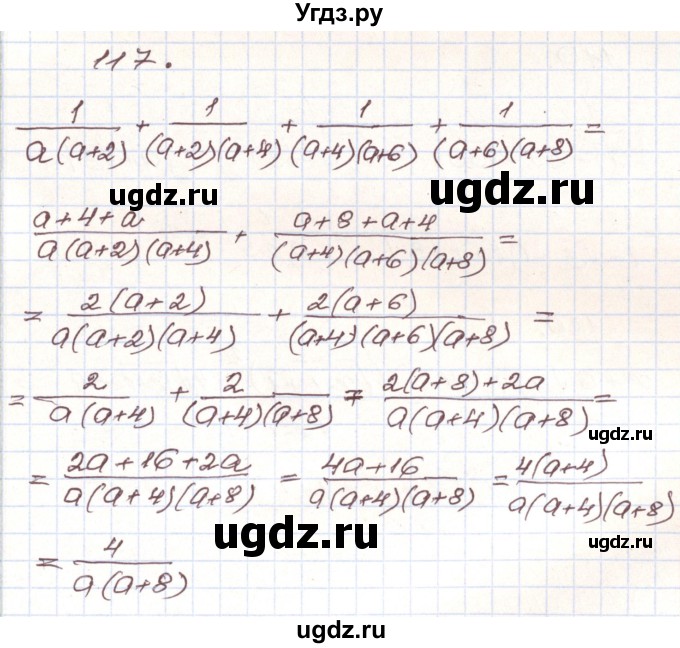 Угдз.ру
117.
1/(a(a+2)) + 1/((a+2)(a+4)) + 1/((a+4)(a+6)) + 1/((a+6)(a+8)) =
ugdz.ru ugdz.ru
(a+4+a)/(a(a+2)(a+4)) + (a+8+a+4)/((a+4)(a+6)(a+8)) =
= 2(a+2)/(a(a+2)(a+4)) + 2(a+6)/((a+4)(a+6)(a+8)) =
= 2/(a(a+4)) + 2/((a+4)(a+8)) = (2(a+8)+2a)/(a(a+4)(a+8)) =
ugdz.ru
= (2a+16+2a)/(a(a+4)(a+8)) = (4a+16)/(a(a+4)(a+8)) = 4(a+4)/(a(a+4)(a+8))
ugdz.ru ugdz.ru
= 4/(a(a+8))
ugdz.ru